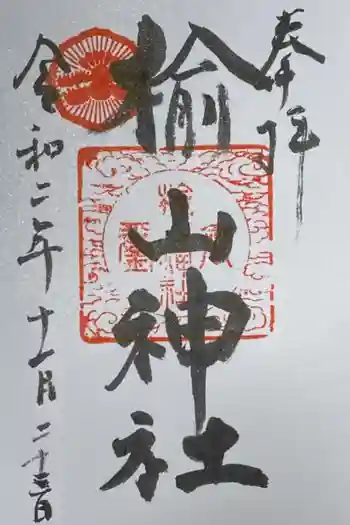 奉拝
榆山神社
令和二年十一月二十三日